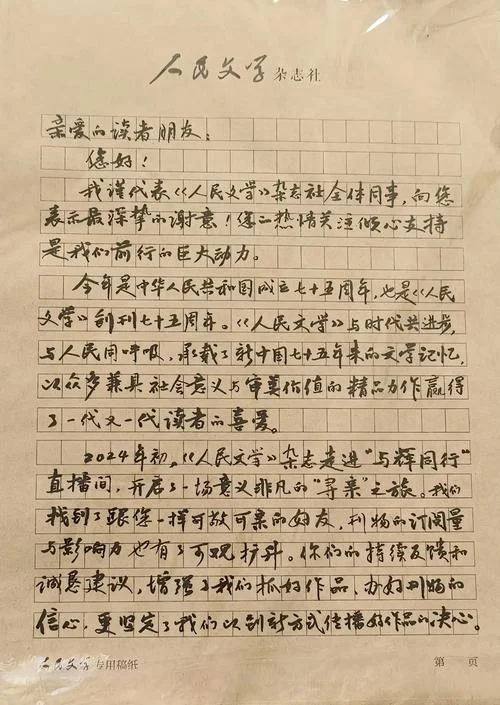 人民文学 杂志社
亲爱的读者朋友：
您好！
我谨代表《人民文学》杂志社全体同事，向您
表示最深挚的谢意！您的热情关注倾心支持
是我们前行的巨大动力。
今年是中华人民共和国成立七十五周年，也是《人民
文学》创刊七十五周年。《人民文学》与时代共进步，
与人民同呼吸，承载了新中国七十五年来的文学记忆，
以众多兼具社会意义与审美价值的精品力作赢得
了一代又一代读者的喜爱。
2024年初，《人民文学》杂志走进“与辉同行”
直播间，开启了一场意义非凡的“寻亲”之旅。我们
找到了跟您一样可敬可亲的好友，刊物的订阅量
与影响力也有了可观扩升。你们的持续反馈和
诚恳建议，增强了我们抓好作品，办好刊物的
信心，更坚定了我们以创新方式传播好作品的决心。
人民文学 专用稿纸 第 页